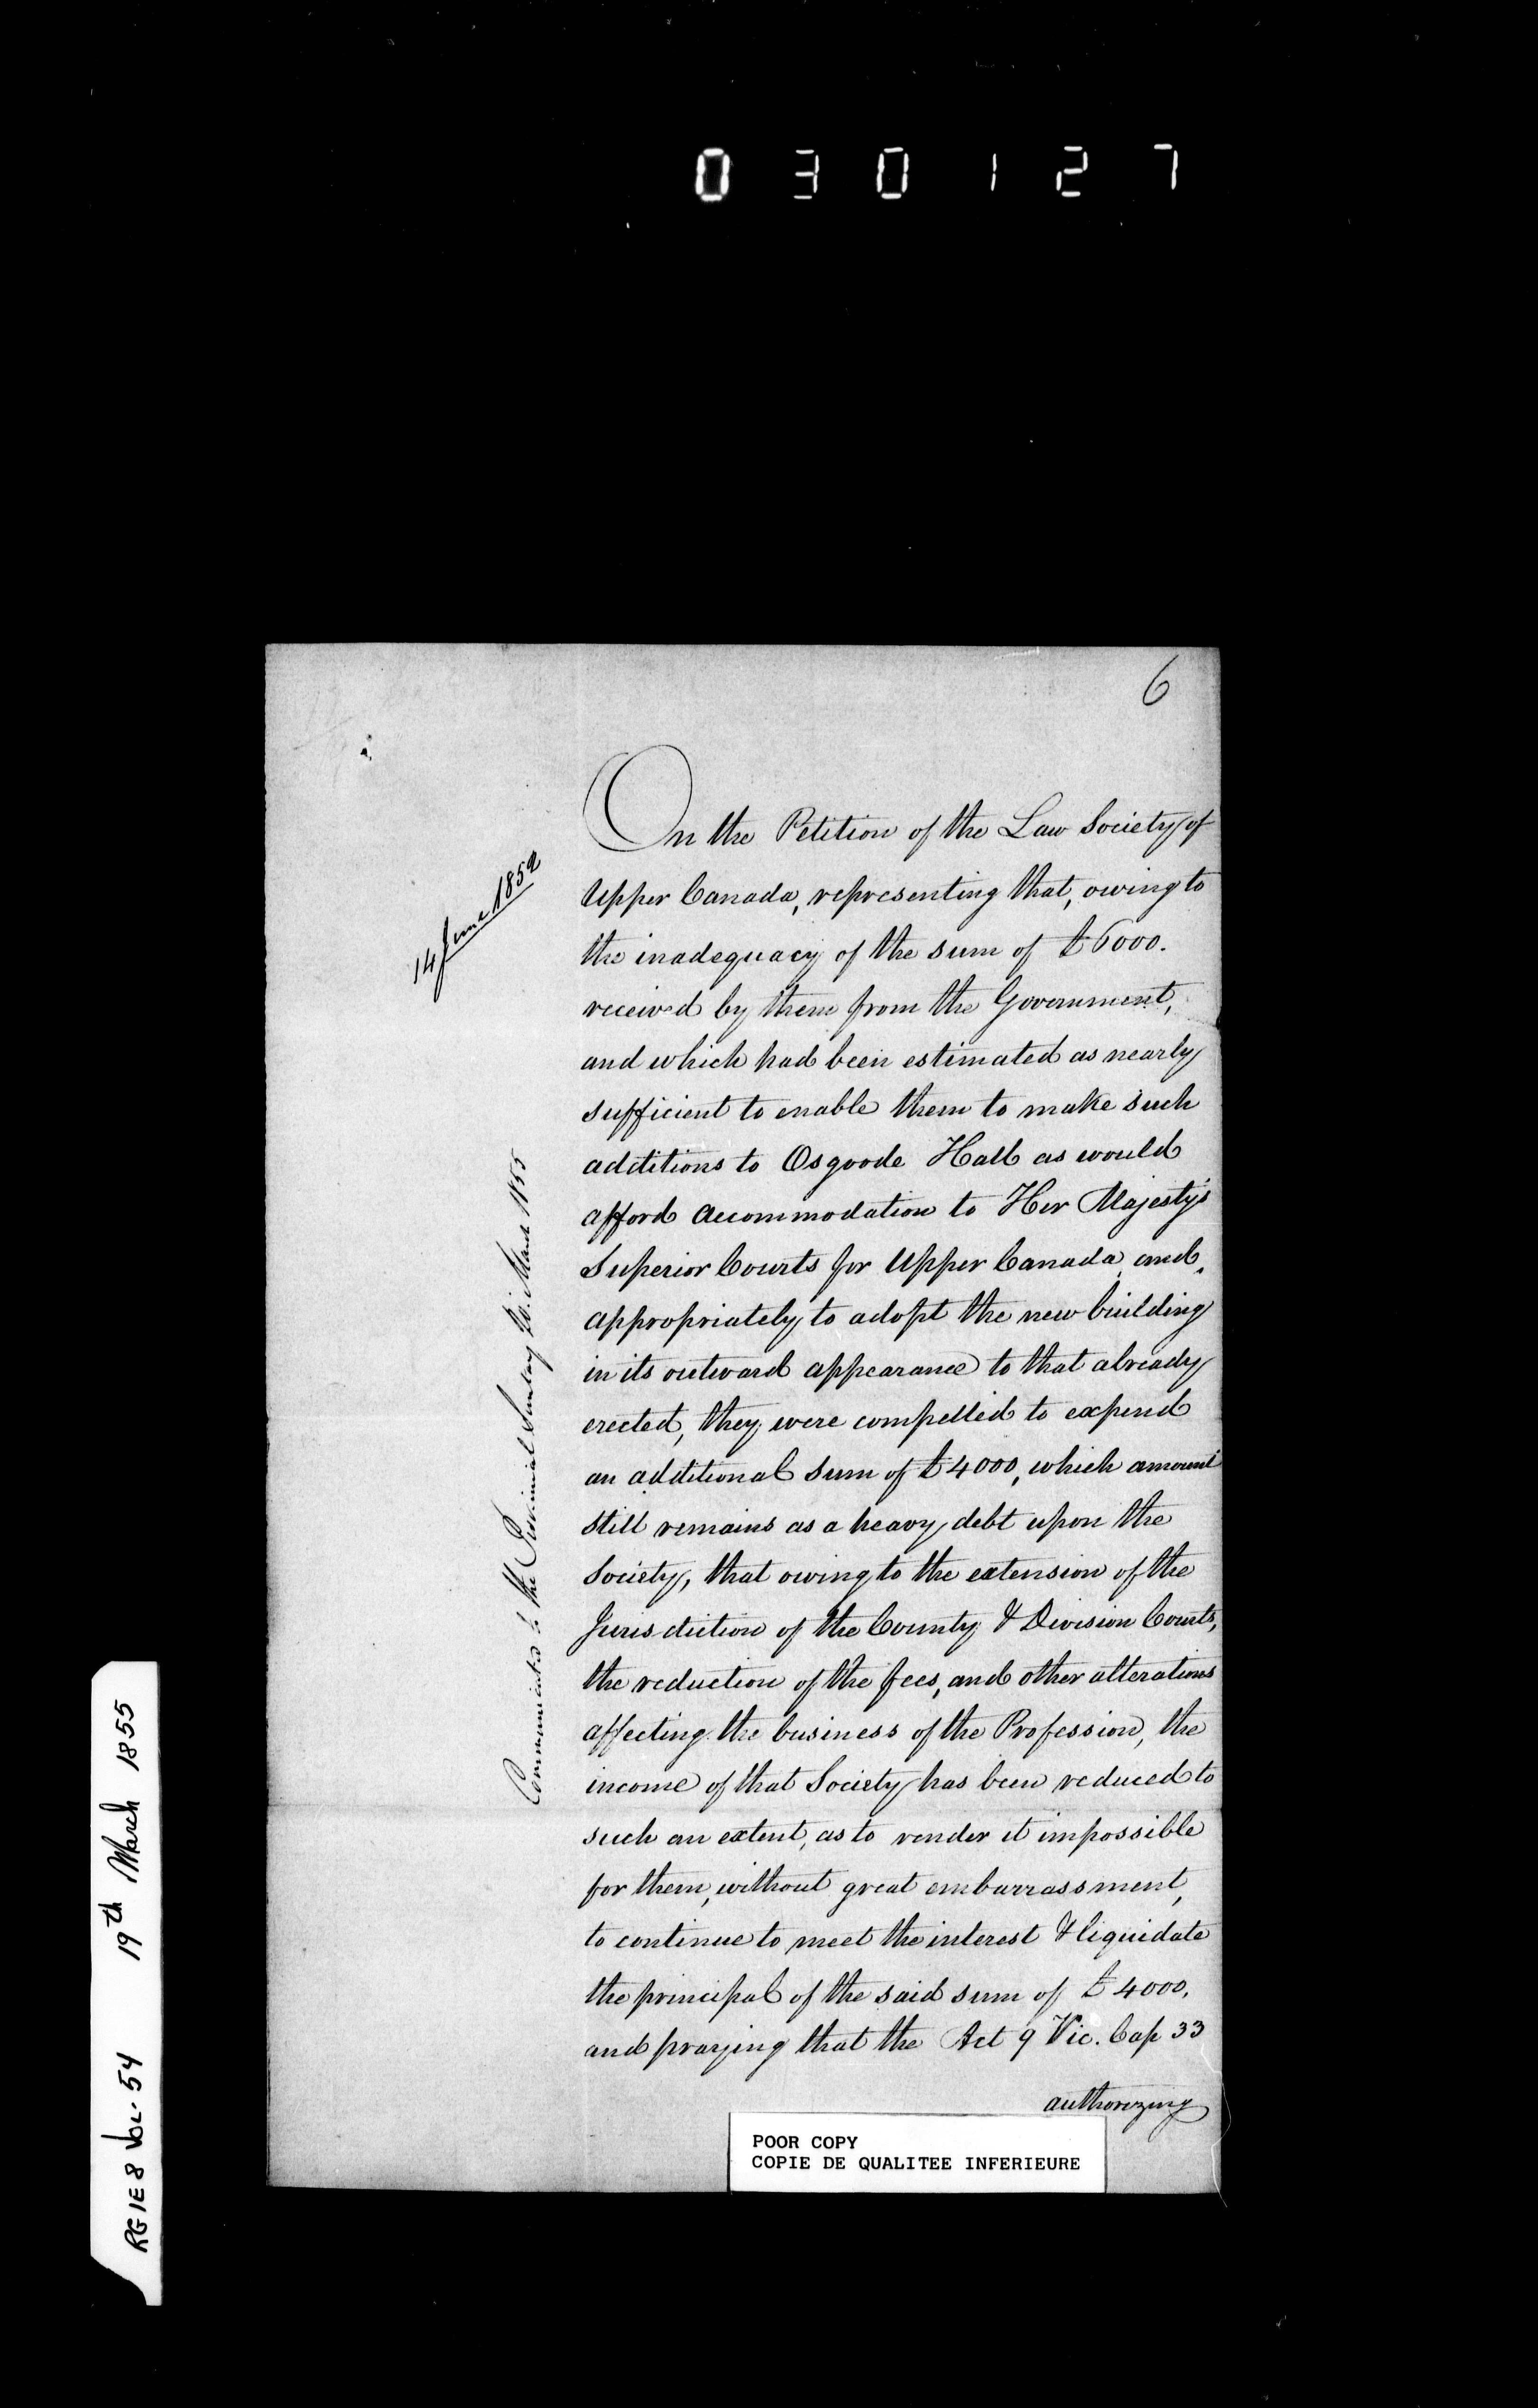 030127
6
14 June 1852
Communicated to the Provincial Secretary 20. March 1855
On the Petition of the Law Society of
Upper Canada, representing that, owing to
the inadequacy of the sum of £6000.
received by them from the Government,
and which had been estimated as nearly
sufficient to enable them to make such
additions to Osgoode Hall as would
afford accommodation to Her Majesty's
Superior Courts for Upper Canada, and,
appropriately to adopt the new building
in its outward appearance to that already
erected, they were compelled to expend
an additional sum of £4000, which amount
still remains as a heavy debt upon the
Society, that owing to the extension of the
Jurisdiction of the County & Division Courts,
the reduction of the fees, and other alterations
affecting the business of the Profession, the
income of that Society has been reduced to
such an extent, as to render it impossible
for them, without great embarrassment,
to continue to meet the interest & liquidate
the principal of the said sum of £4000.
and praying that the Act 9 Vic. Cap 33
authorizing
POOR COPY
COPIE DE QUALITEE INFERIEURE
RG 1E8 VOL. 54 19th March 1855